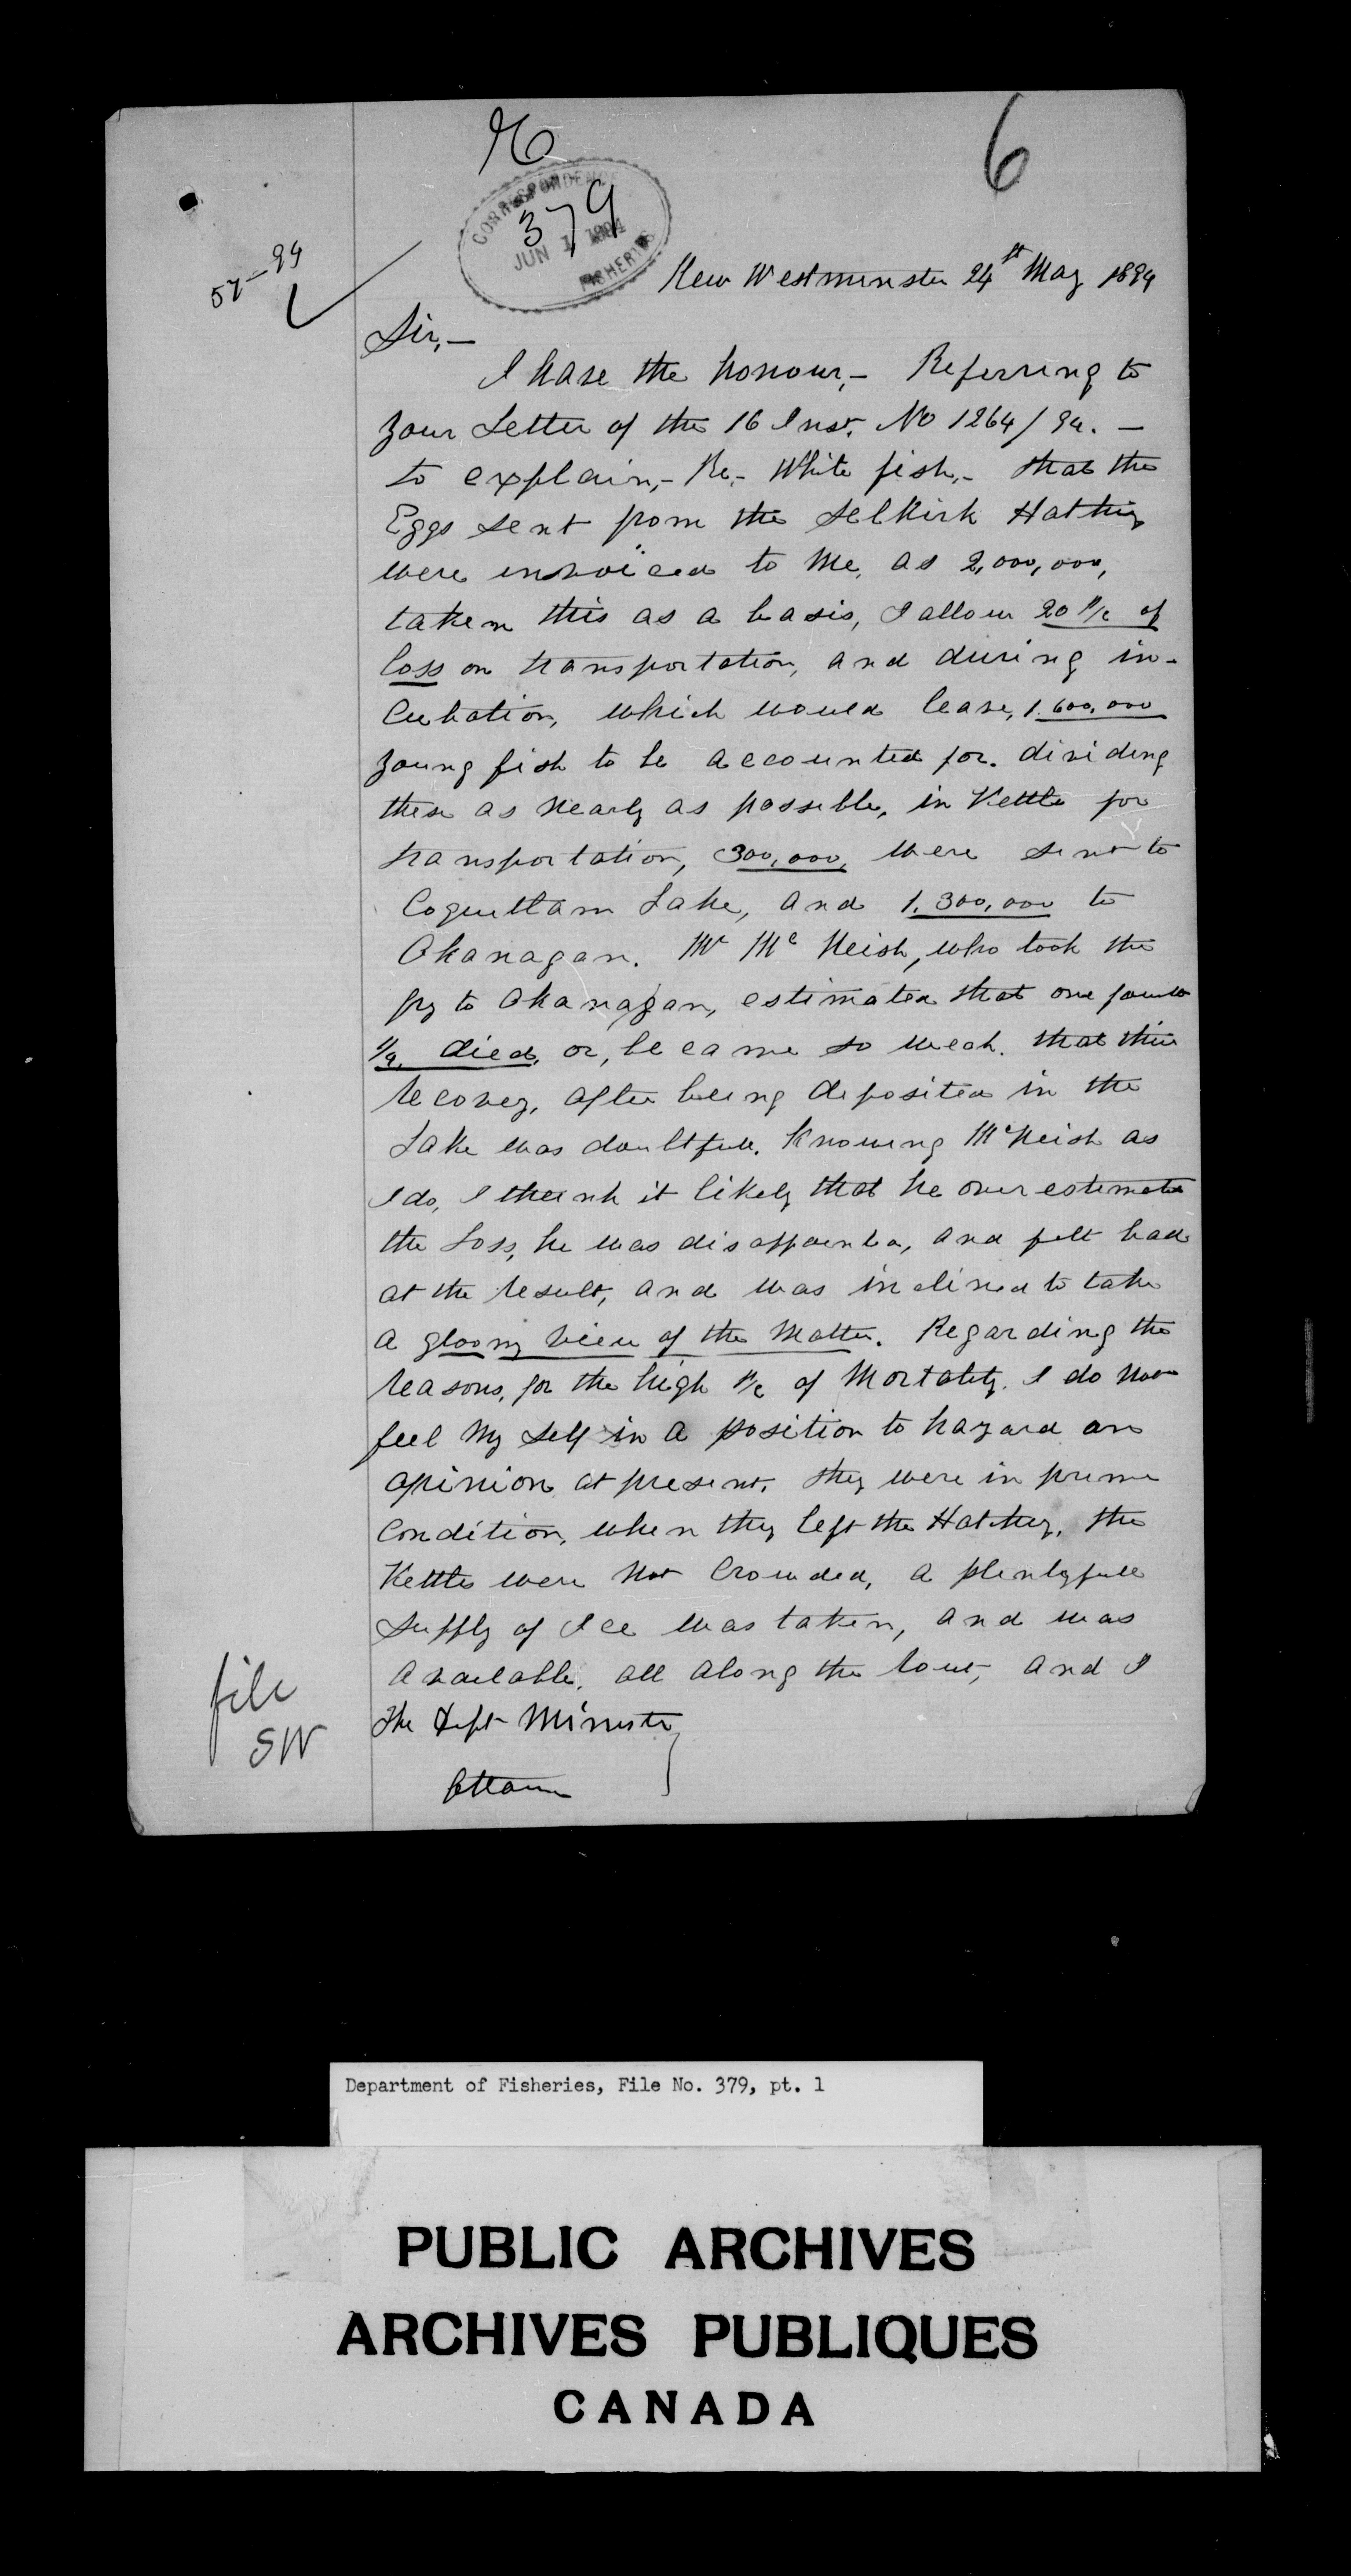 6
CORRESPONDENCE
379
JUN 1 1894
FISHERIES
New Westminster 24st May 1894
Sir,—
I have the honour,— Referring to
your Letter of the 16 Inst. No 1264/94. —
to explain,- Re,- White fish,- that the
Eggs sent from the Selkirk Hatchery
were invoiced to Me, as 2,000,000,
taken this as a basis, I allow 20 % of
loss on transportation, and during in-
cubation, which would leave, 1.600,000
young fish to be accounted for. dividing
these as nearly as possible, in Kettle for
transportation, 300,000, were sent to
Coquitlam Lake, and 1.300,000 to
Okanagan. Mr McNeish, who took the
fry to Okanagan, estimated that one fourth
1/4. died, or, became so weak. that their
recovery, after being deposited in the
Lake was doubtfull. Knowing McNeish as
I do, I think it likely that he over estimated
the Loss, he was disappointed, and felt bad
at the result, and was inclined to take
a gloomy view of the Matter. Regarding the
reasons, for the high % of Mortality. I do not
feel My Self in a position to hazard an
opinion at present. they were in prime
Condition, when they left the Hatchery, the
Kettles were Not Crowded, a plentyfull
supply of Ice was taken, and was
available, all along the rout, and I
The Dept Minister
Ottawa
file
SW
Department of Fisheries, File No. 379, pt. 1
PUBLIC ARCHIVES
ARCHIVES PUBLIQUES
CANADA